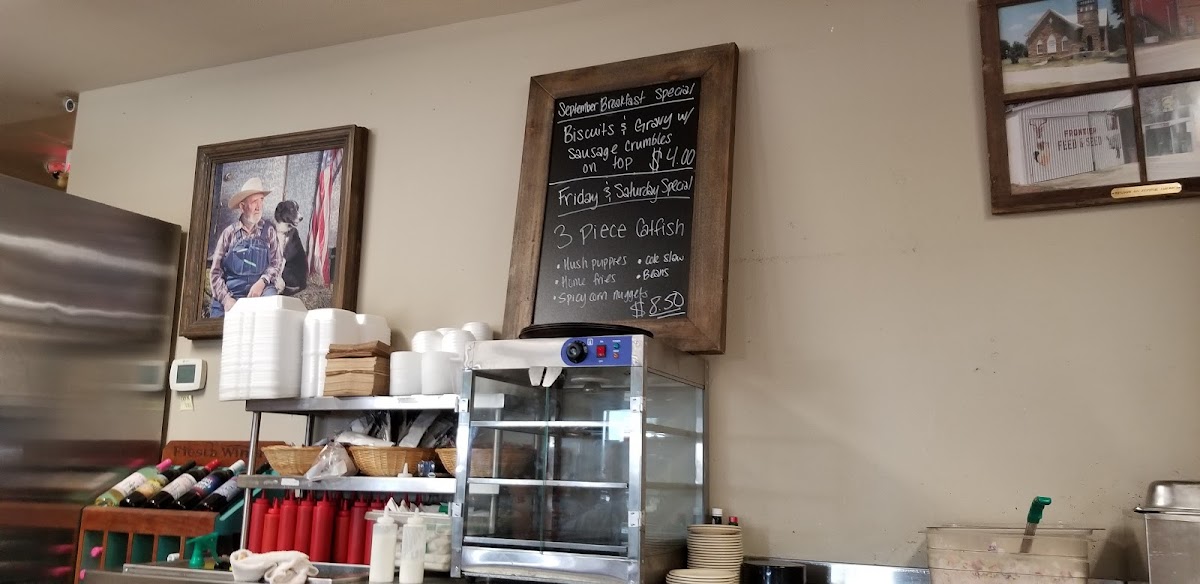 September Breakfast Special
Biscuits & Gravy w/
Sausage Crumbles
on top $4.00
Friday & Saturday Special
3 Piece Catfish
• Hush puppies • cole slaw
• Home fries • Beans
• Spicy corn nuggets
$8.50
FRONTIER
FEED & SEED